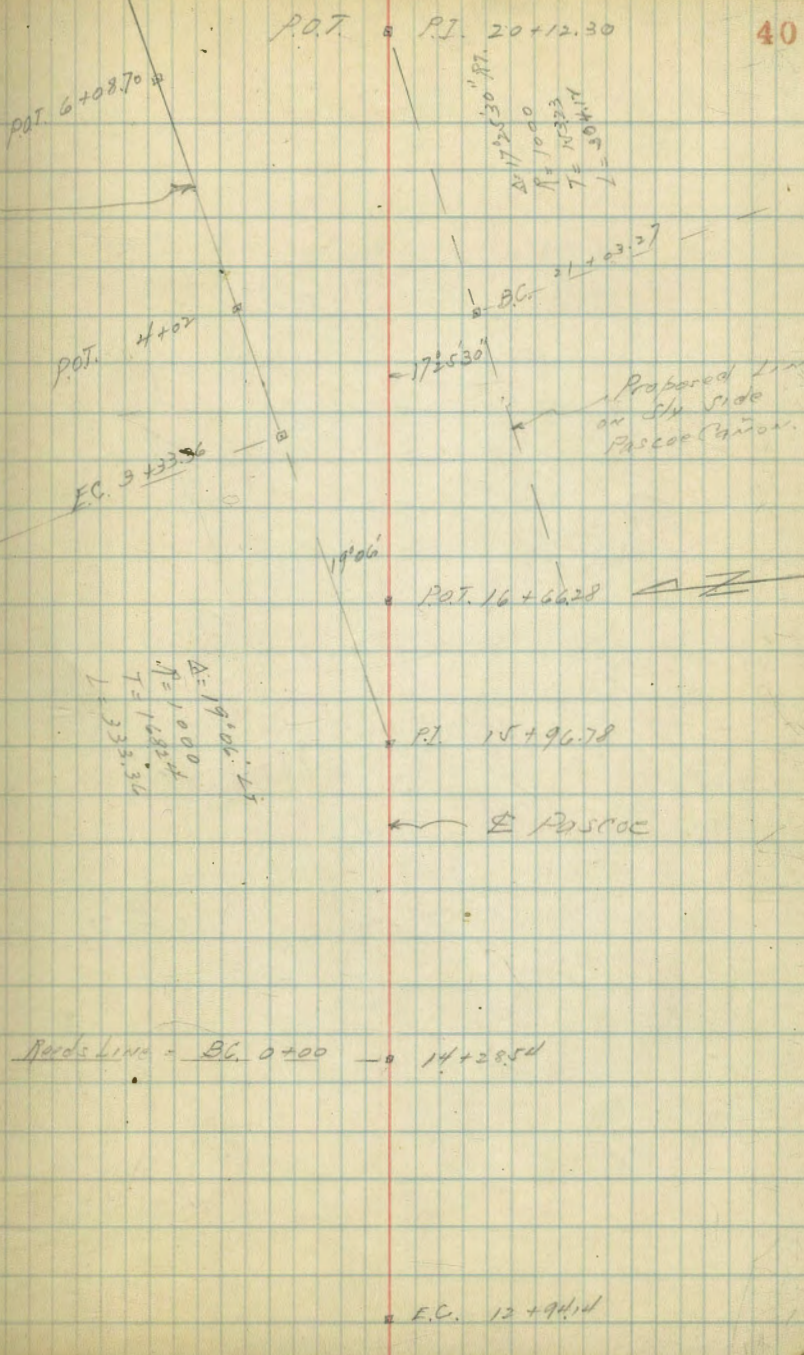 40
P.O.T. P.I. 20+12.30
P.O.T. 6+08.70
Δ=17°25'30" RT.
R=1000
T=153.23
L=304.14
B.C. 21+03.27
P.O.T. 4+02
17°25'30"
Proposed Line
on Sly side
Pascoe Cañon.
E.C. 3+33.36
19°06'
P.O.T. 16+66.28
Δ=19°06' LT
R=1000
T=168.24
L=333.36
P.I. 15+96.78
⅊ Pascoe
Reeds Line = B.C. 0+00 14+28.54
E.C. 12+94.14